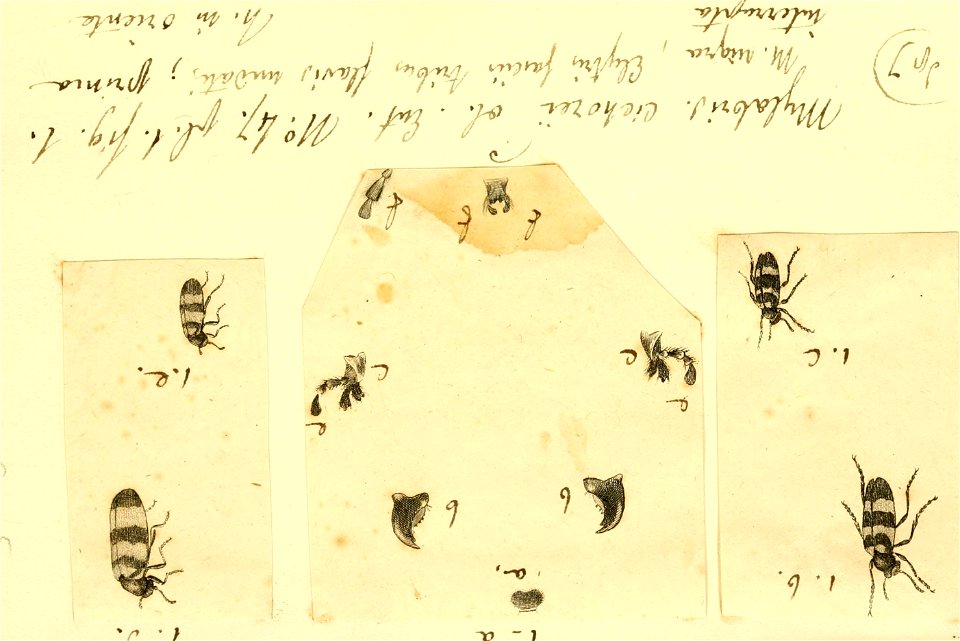 1-a
a,
1. b.
b b
e c c e
1. c
1. e.
f g f
Mylabris. cichorei ol. Ent. No. 47. pl. 1. fig. 1.
M. nigra, Elytris fasciis tribus flavis undatis; prima
interrupta h. in oriente